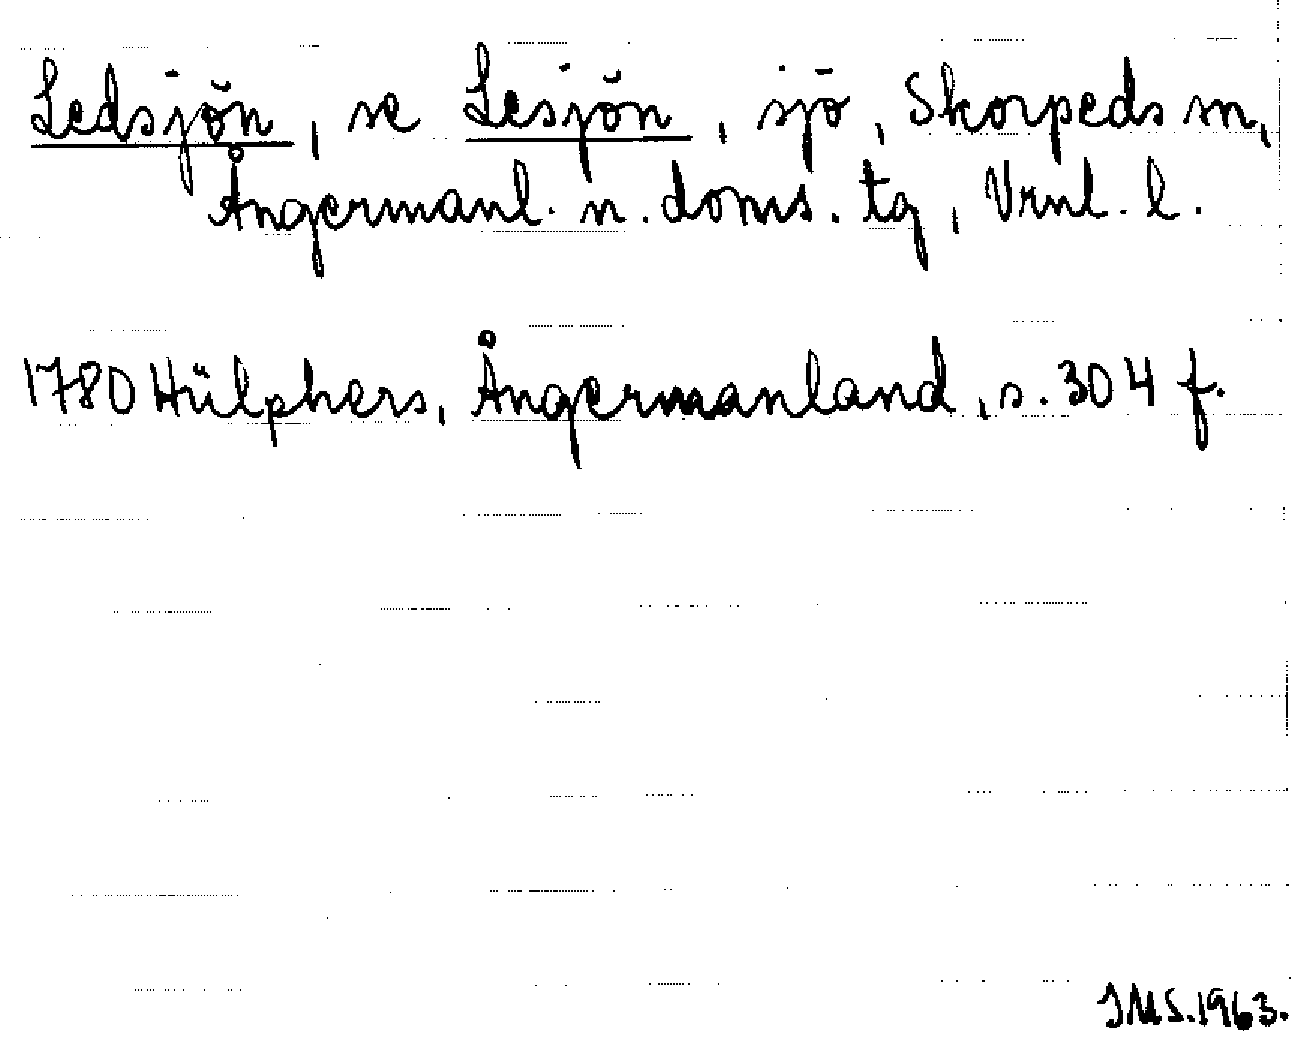 Ledsjön, se Lesjön, sjö, Skorpeds sn,
Ångermanl. n. doms. tg, Vrnl. l.
1780 Hülphers, Ångermanland, s. 304 f.
IMS. 1963.